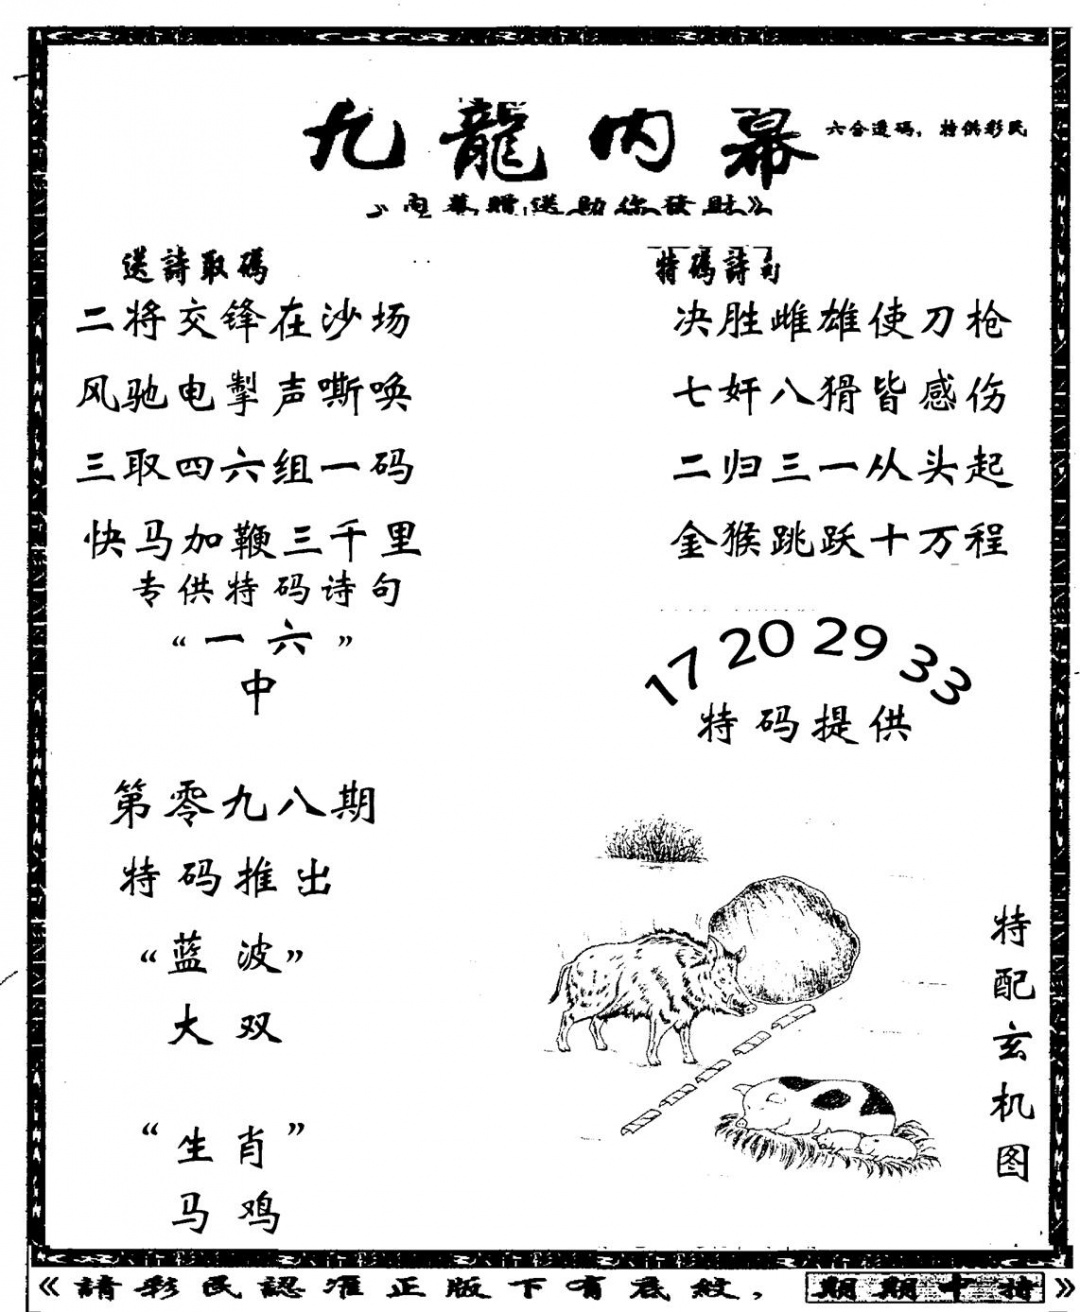 九龍内幕
六合透码，特供彩民
内幕赠送助你發财》
送詩取碼
二将交锋在沙场
风驰电掣声嘶唤
三取四六组一码
快马加鞭三千里
专供特码诗句
“一六”
中
第零九八期
特码推出
“蓝波”
大双
“生肖”
马鸡
特碼詩句
决胜雌雄使刀枪
七奸八猾皆感伤
二归三一从头起
金猴跳跃十万程
17 20 29 33
特码提供
特配玄机图
《請彩民認准正版下有底紋，期期中特》